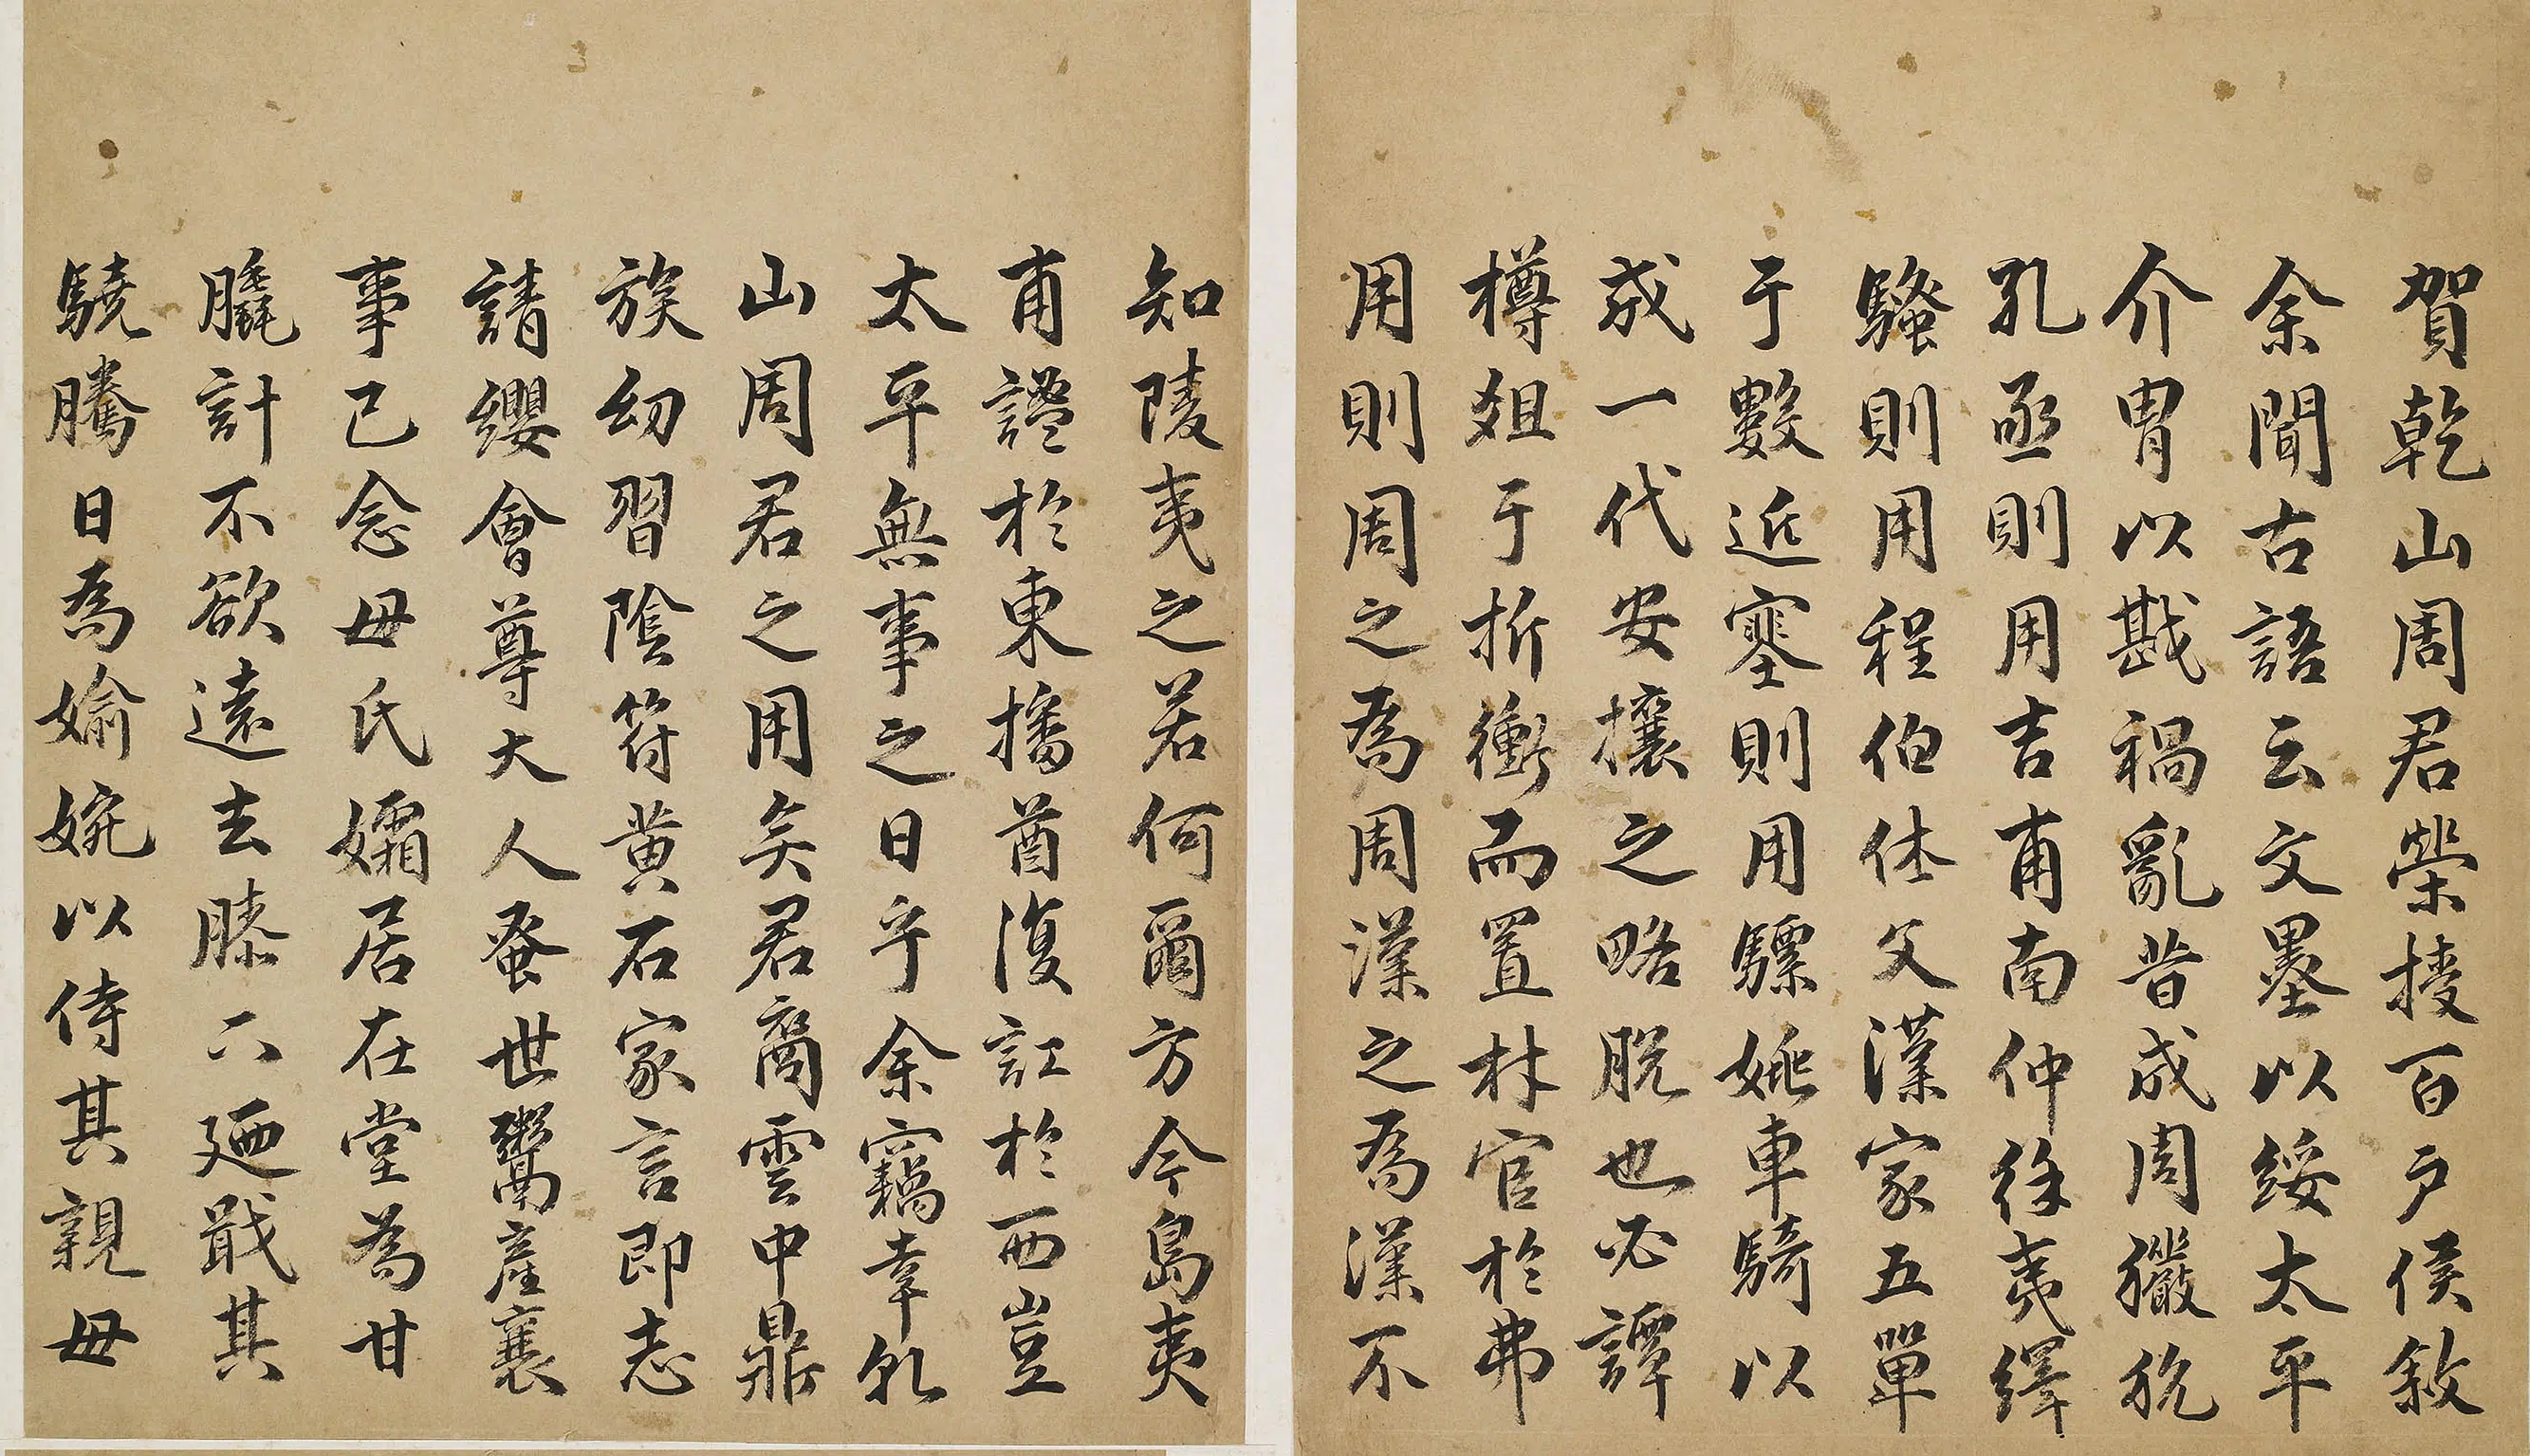 賀乾山周君榮授百戶侯敘
余聞古語云文墨以綏太平
介冑以戡禍亂昔成周玁狁
孔亟則用吉甫南仲徐夷繹
騷則用程伯休父漢家五單
于數近塞則用驃姚車騎以
成一代安攘之略脫也必譚
樽俎于折衝而置材官於弗
用則周之為周漢之為漢不
知陵夷之若何爾方今島夷
甫謐於東播酋復訌於西豈
太平無事之日乎余竊幸乾
山周君之用矣君裔雲中鼎
族幼習陰符黃石家言即志
請纓會尊大人蚤世鬻產襄
事已念母氏孀居在堂為甘
膬計不欲遠去膝下廼戢其
驍騰日為婾婉以侍其親母